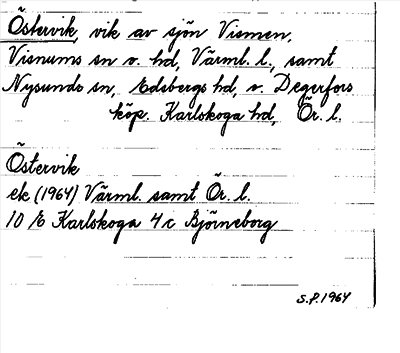 Östervik, vik av sjön Vismen,
Visnums sn o. hd, Värml. l., samt
Nysunds sn, Edsbergs hd, o. Degerfors
köp. Karlskoga hd, Ör. l.
Östervik
ek (1964) Värml. samt Ör. l.
10 E Karlskoga 4 c Björneborg
S.P. 1964